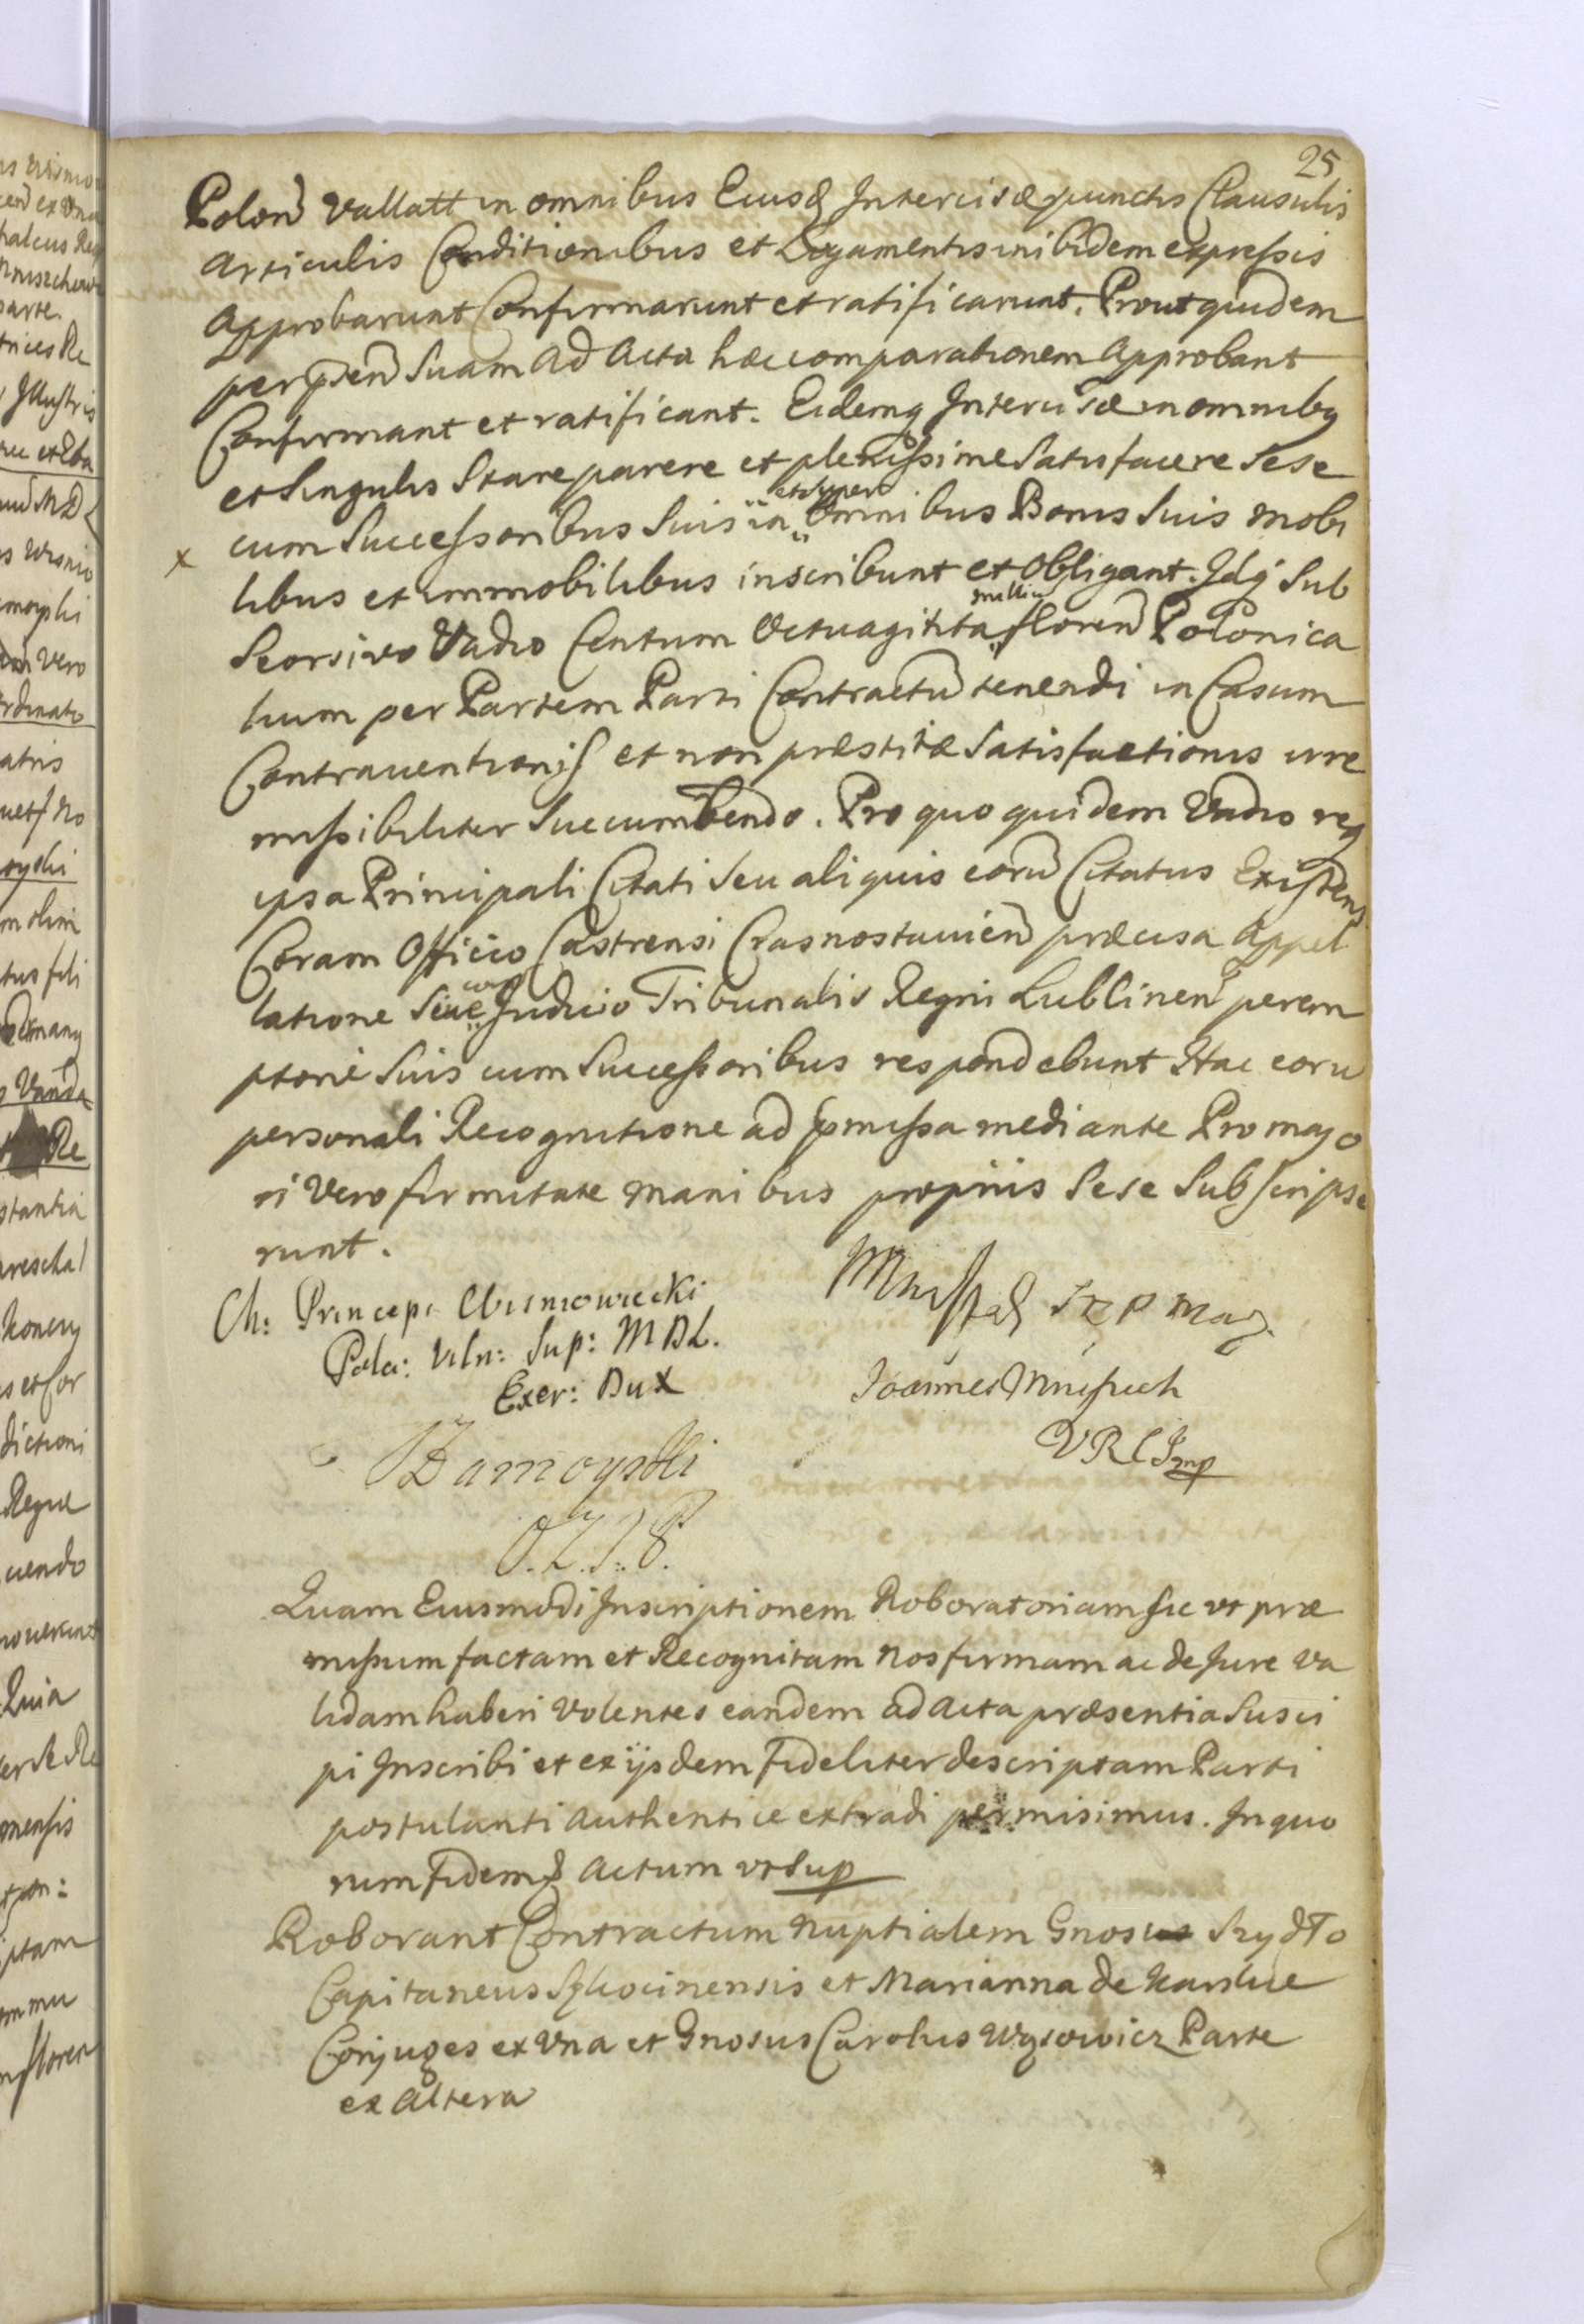 25
Polon Vallatt in omnibus Eiusd Intercisæ punctis Clausulis
Articulis Conditionibus et Ligamentis inibidem expressis
Approbarunt Confirmarunt et ratificarunt. Prout quidem
per pn̄tem Suam Ad Acta hæc comparationem Approbant
Confirmant et ratificant. Eidemq Intercisæ in omnibq
et Singulis Stare parere et plenissime Satisfacere Sese
cum Successoribus Suis in et super Omnibus Bonis Suis mobi
x
libus et immobilibus inscribunt et Obligant. Idq Sub
Seorsivo Vadio Centum Octuaginta milliu floren Polonica
lium per Partem Parti Contractu tenendi in Casum
Contrauentionis et non præstitæ Satisfactionis irre
missibiliter Succumbendo. Pro quo quidem Vadio req
ipsa Principali Citati Seu aliquis eoru Citatus Existens
Coram Officio Castrensi Crasnostavien præcisa Appel
latione Siue Judicio Tribunalis Regni Lublinen perem
ptorie Suis cum Successoribus respondebunt Hac eoru
personali Recognitione ad præmissa mediante Pro majo
ri Vero firmitate manibus propriis Sese Subscripse
runt.
Ch: Princeps Wisniowiecki
Pala: Viln: Sup: M D L.
Exer: Dux
Joannes Mniszech
V R C J mp
Zamoyski
O. Z. J. 8.
Quam Eiusmodi Inscriptionem Roboratoriam sic vt præ
missum factam et Recognitam Nos firmam ac de Jure va
lidam haberi Volentes eandem ad Acta præsentia Susci
pi Inscribi et ex ijsdem Fideliter descriptam Parti
postulanti Authentice extradi permisimus. In quo
rum Fidem & Actum vt Sup
Roborant Contractum Nuptialem Gnosus Szydło
Capitaneus et Marianna de
Conjuges ex Vna et Gnosus Carolus Wysowicz Parte
ex Altera